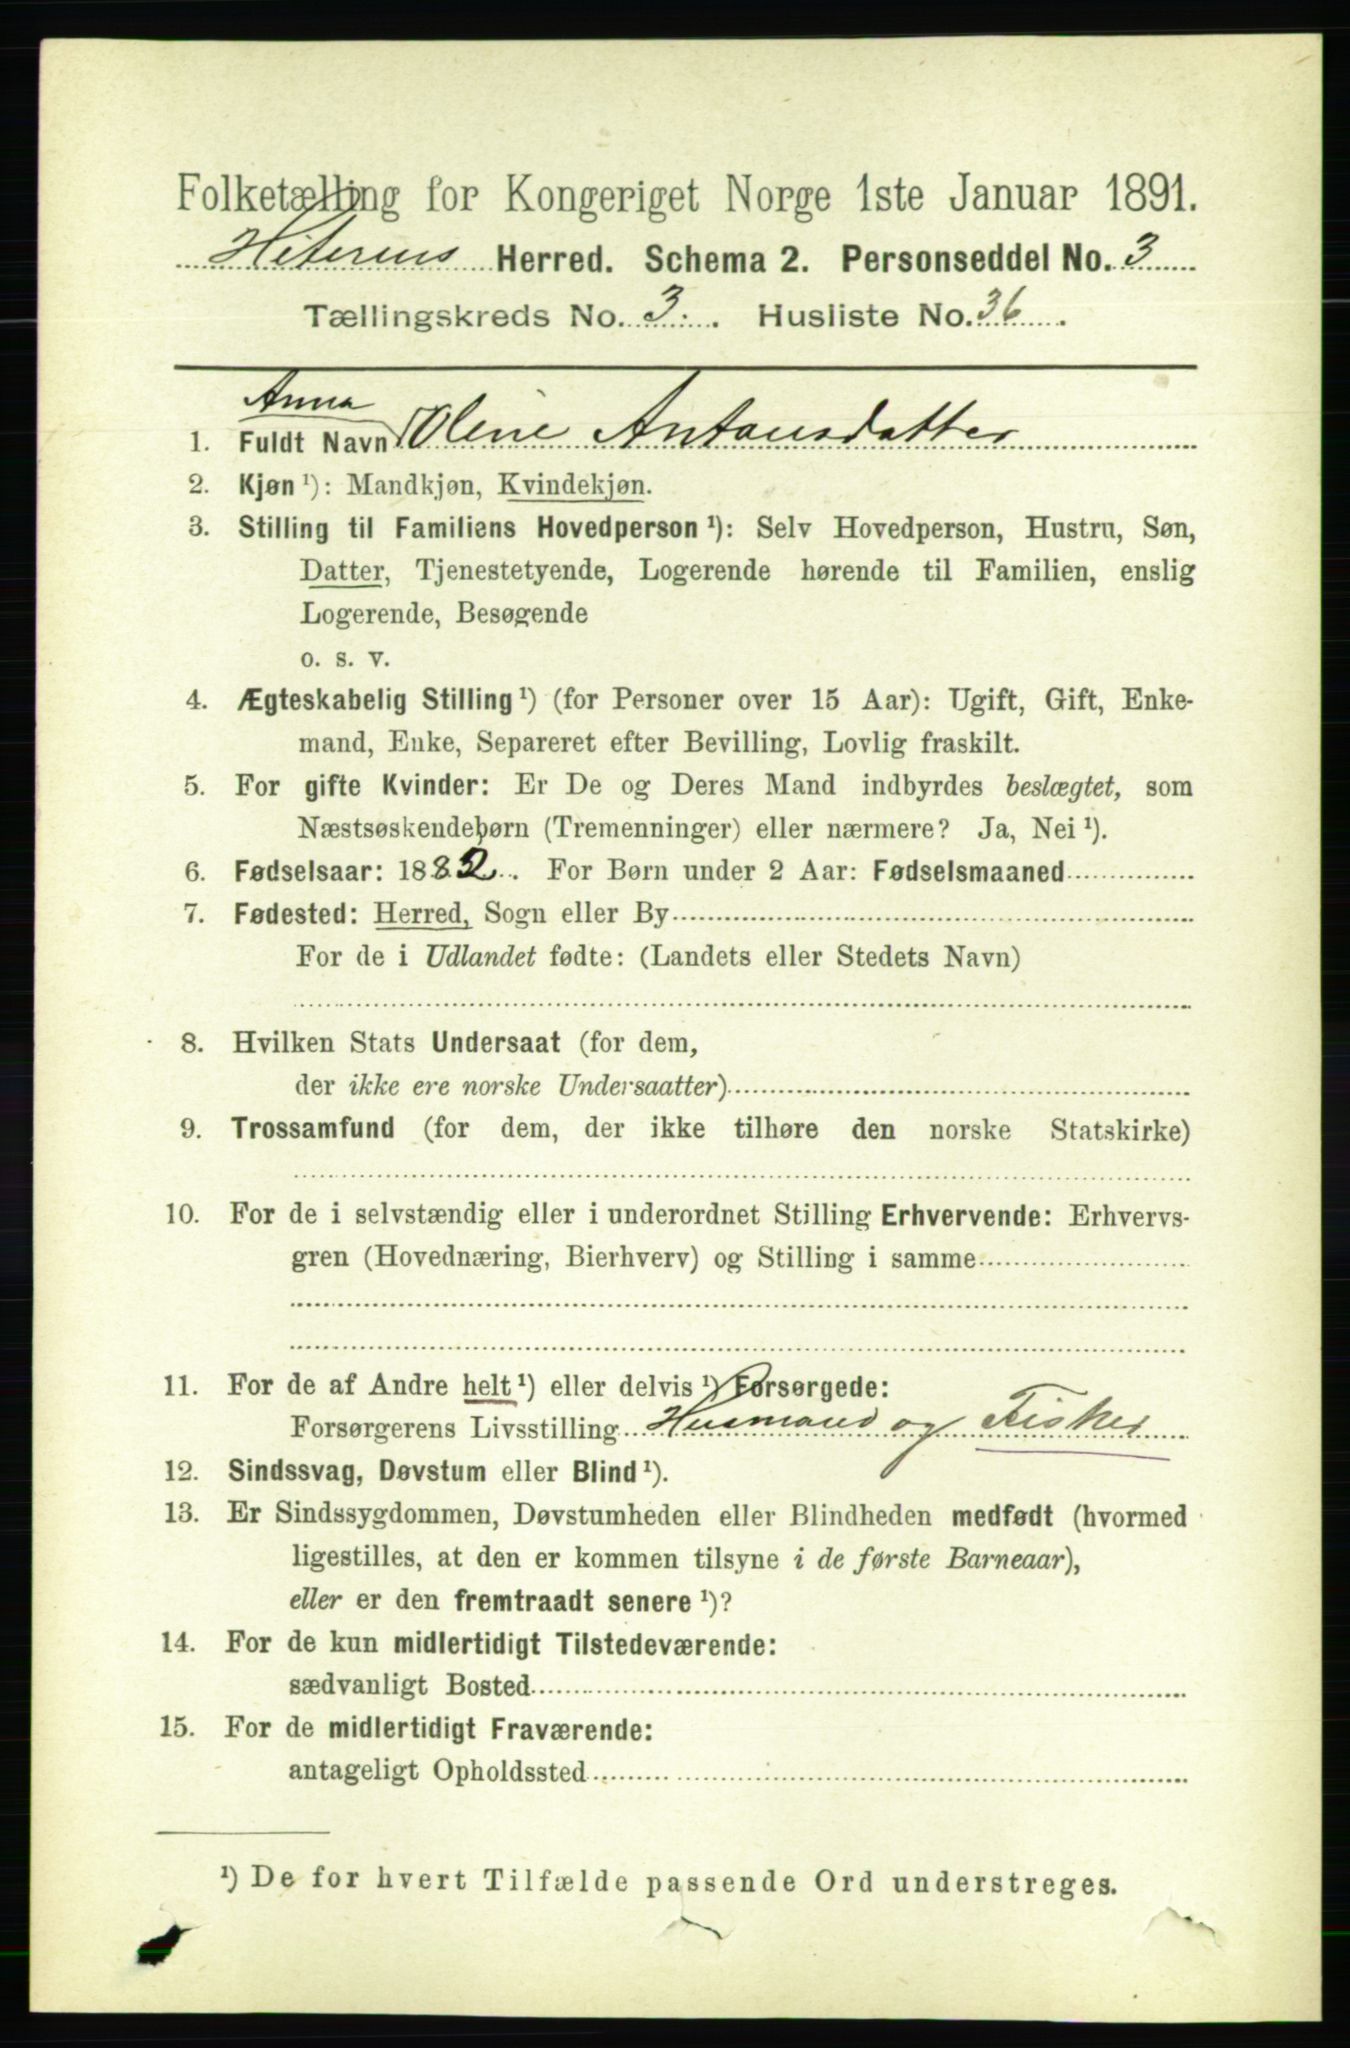 Folketælling for Kongeriget Norge 1ste Januar 1891.
Hiterens Herred. Schema 2. Personseddel No. 3
Tællingskreds No. 3. Husliste No. 36
Anna
1. Fuldt Navn Oline Antonsdatter
2. Kjøn ¹): Mandkjøn, Kvindekjøn.
3. Stilling til Familiens Hovedperson ¹): Selv Hovedperson, Hustru, Søn,
Datter, Tjenestetyende, Logerende hørende til Familien, enslig
Logerende, Besøgende
o. s. v.
4. Ægteskabelig Stilling ¹) (for Personer over 15 Aar): Ugift, Gift, Enke-
mand, Enke, Separeret efter Bevilling, Lovlig fraskilt.
5. For gifte Kvinder: Er De og Deres Mand indbyrdes beslægtet, som
Næstsøskendebørn (Tremenninger) eller nærmere? Ja, Nei ¹).
6. Fødselsaar: 1882. For Børn under 2 Aar: Fødselsmaaned
7. Fødested: Herred, Sogn eller By
For de i Udlandet fødte: (Landets eller Stedets Navn)
8. Hvilken Stats Undersaat (for dem,
der ikke ere norske Undersaatter)
9. Trossamfund (for dem, der ikke tilhøre den norske Statskirke)
10. For de i selvstændig eller i underordnet Stilling Erhvervende: Erhvervs-
gren (Hovednæring, Bierhverv) og Stilling i samme
11. For de af Andre helt ¹) eller delvis ¹) Forsørgede:
Forsørgerens Livsstilling Husmand og Fisker
12. Sindssvag, Døvstum eller Blind ¹).
13. Er Sindssygdommen, Døvstumheden eller Blindheden medfødt (hvormed
ligestilles, at den er kommen tilsyne i de første Barneaar),
eller er den fremtraadt senere ¹)?
14. For de kun midlertidigt Tilstedeværende:
sædvanligt Bosted
15. For de midlertidigt Fraværende:
antageligt Opholdssted
¹) De for hvert Tilfælde passende Ord understreges.